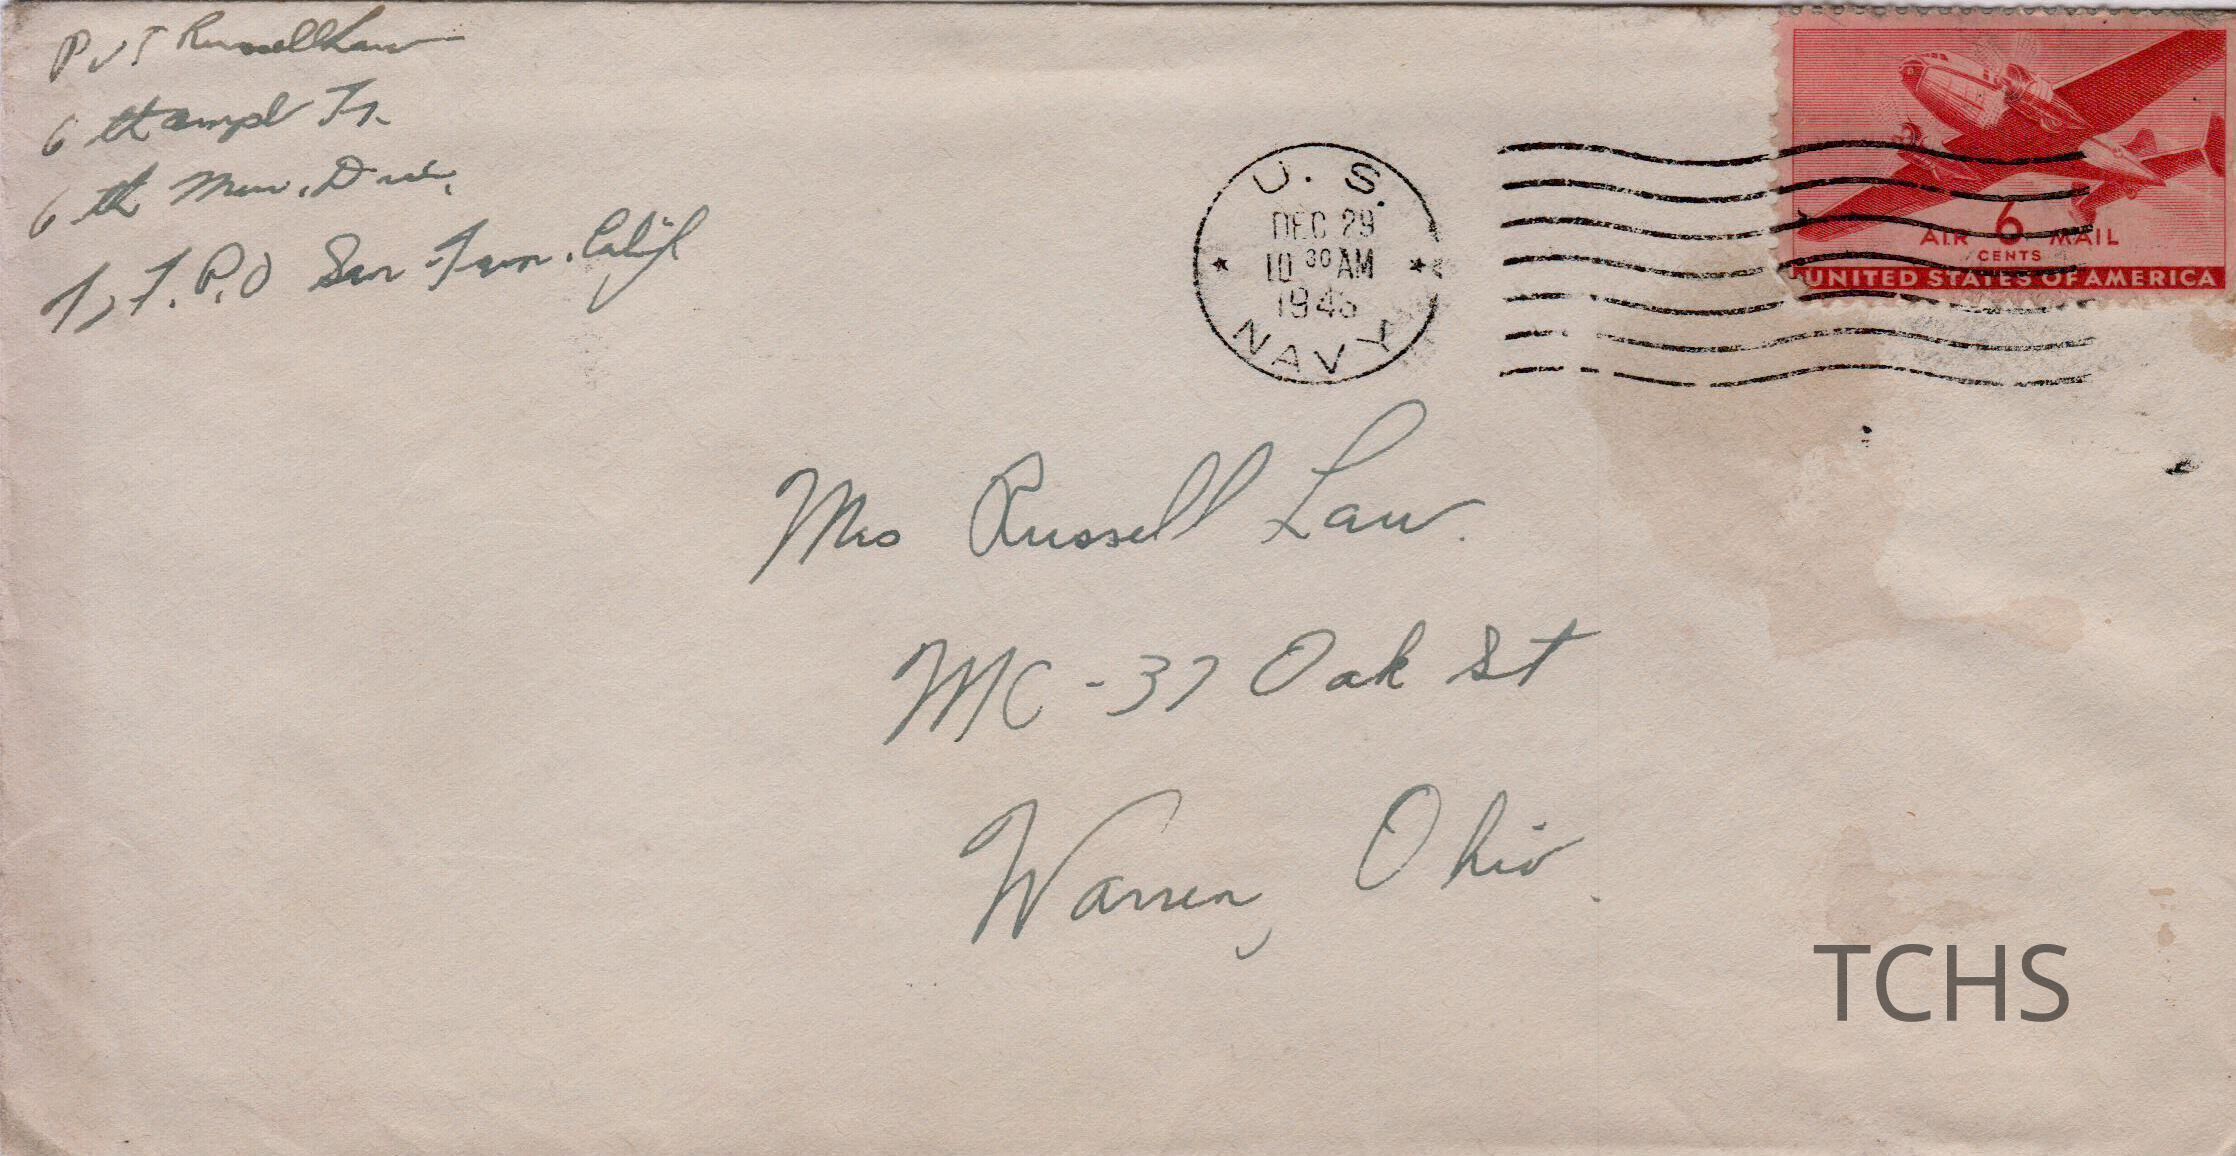 Pvt Russell Law
6th Ampb Tr.
6th Mar. Div.
F.P.O San Fran. Calif
U. S.
DEC 29
10 30 AM
1945
NAVY
6
AIR MAIL
CENTS
UNITED STATES OF AMERICA
Mrs Russell Law.
MC-37 Oak St
Warren, Ohio
TCHS